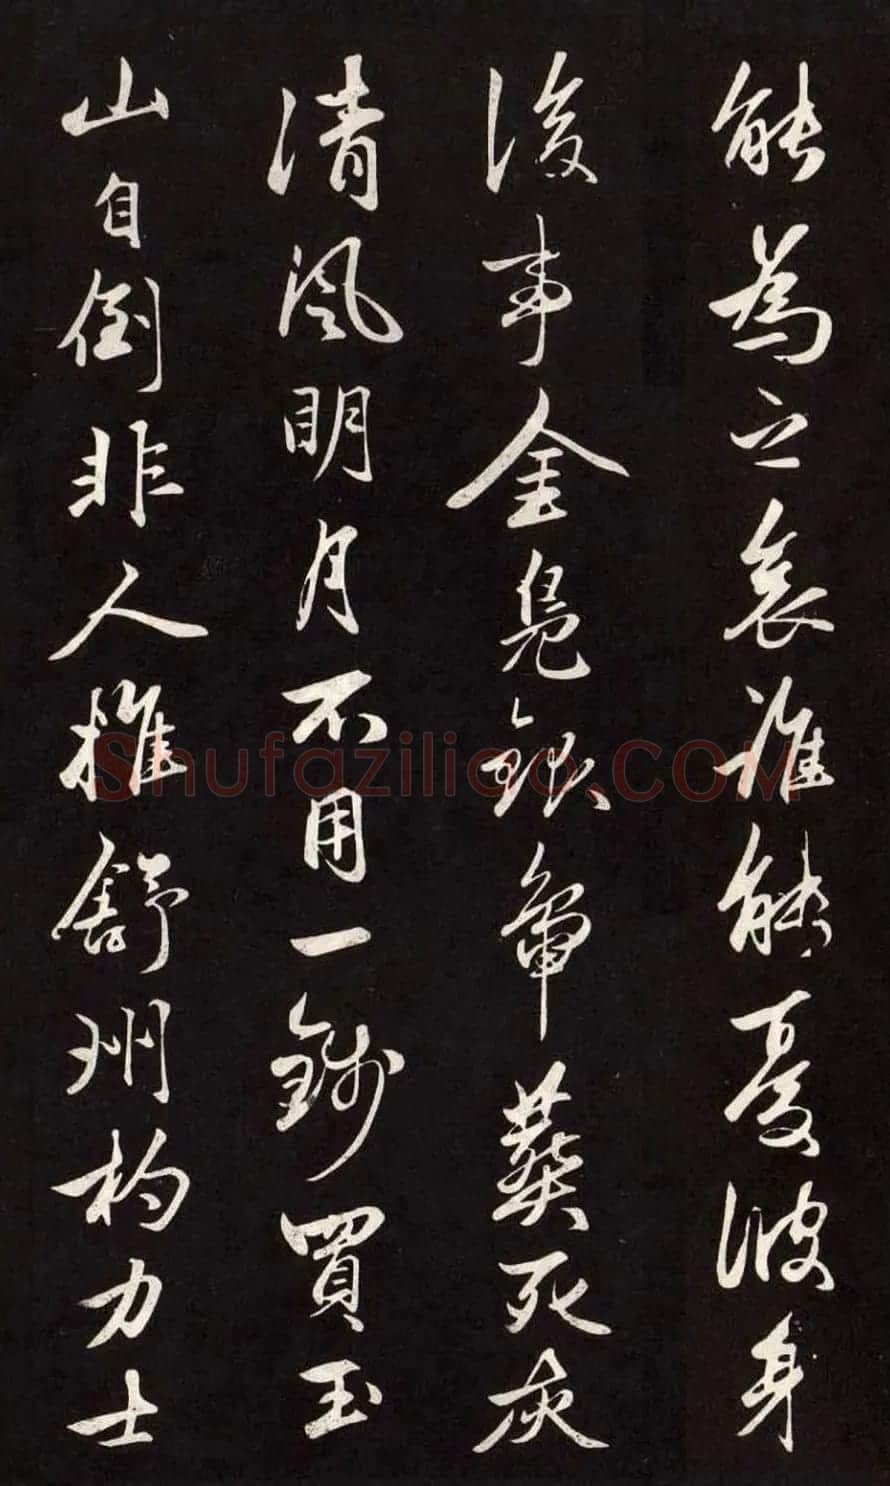 能為之哀誰能憂彼身
後事金鳧銀葬死灰
清風明月不用一錢買玉
山自倒非人推舒州杓力士
Shufaziliao.COM